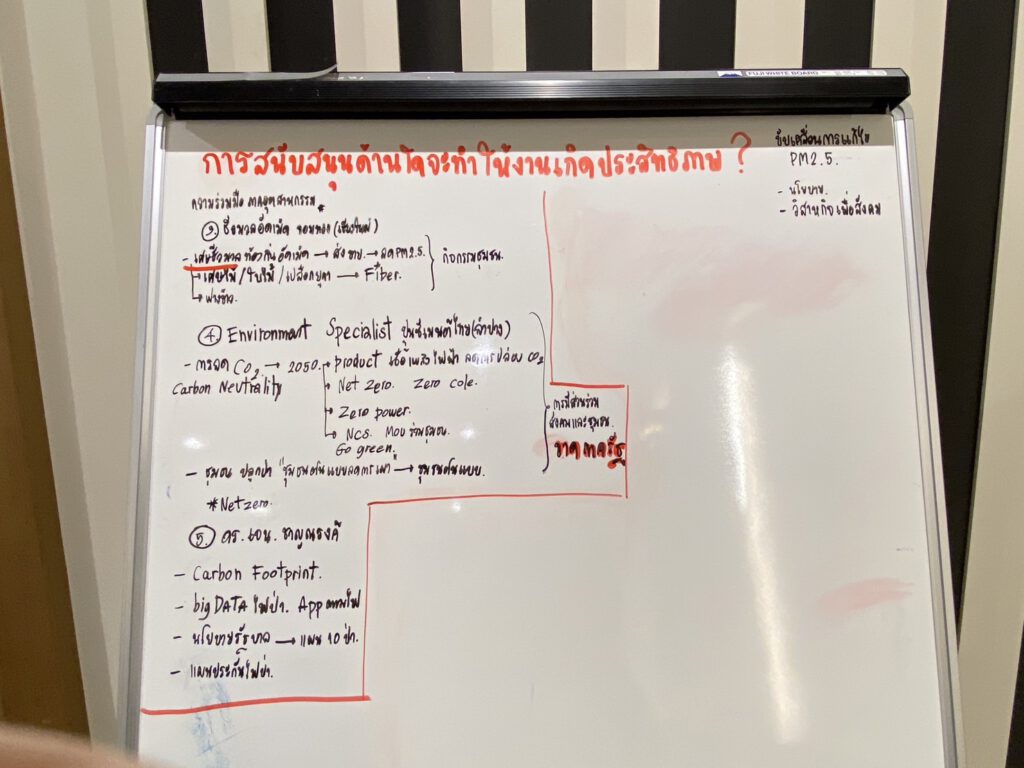 FUJI WHITE BOARD
การสนับสนุนด้านใดจะทำให้งานเกิดประสิทธิภาพ?
ขับเคลื่อนการแก้ไข
PM2.5.
- นโยบาย.
- วิสาหกิจเพื่อสังคม
ความร่วมมือ ภาคอุตสาหกรรม *
③ ชีวมวลอัดเม็ด จอมทอง (เชียงใหม่)
- เศษชีวมวล ท้องถิ่น อัดเม็ด → ส่งขาย. → ลด PM2.5.
→ เศษไม้ / ใบไม้ / เปลือก → Fiber.
→ ฟางข้าว.
กิจกรรมชุมชน.
④ Environmant Specialist ปูนซีเมนต์ไทย (ลำปาง)
- การลด CO2 → 2050. → product เชื้อเพลิง ไฟฟ้า ลดการปล่อย CO2
Carbon Neutrality → Net Zero. Zero Cole.
→ Zero power.
→ Ncs. MOU ร่วมชุมชน.
Go green.
- ชุมชน ปลูกป่า "ชุมชนต้นแบบลดการเผา → ชุมชนต้นแบบ.
* Net zero.
การมีส่วนร่วม
สังคมและชุมชน.
ขาดภาครัฐ
⑤ ดร. เจน. ชาญณรงค์
- Carbon Footprint.
- big DATA ไฟป่า. App ตามไฟ
- นโยบายรัฐบาล → แผน 10 ป่า.
- แผนประกันไฟป่า.